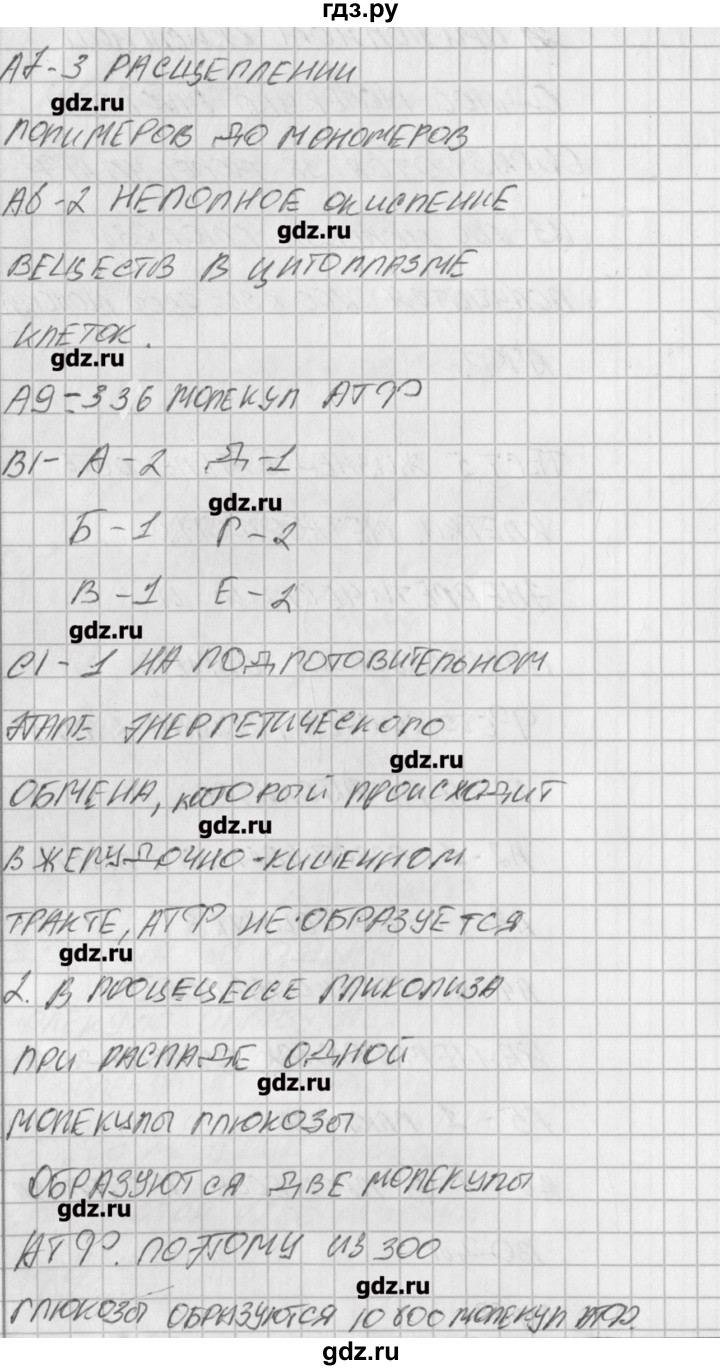 гдз.ру
А7-3 РАСЩЕПЛЕНИИ
gdz.ru
ПОЛИМЕРОВ ДО МОНОМЕРОВ
А6-2 НЕПОЛНОЕ ОКИСЛЕНИЕ
gdz.ru
ВЕЩЕСТВ В ЦИТОПЛАЗМЕ
КЛЕТОК.
gdz.ru
А9-336 МОЛЕКУЛ АТФ
В1- А-2 Д-1
gdz.ru
Б-1 Г-2
В-1 Е-2
gdz.ru
С1-1 НА ПОДГОТОВИТЕЛЬНОМ
ЭТАПЕ ЭНЕРГЕТИЧЕСКОГО
gdz.ru
ОБМЕНА, КОТОРЫЙ ПРОИСХОДИТ
gdz.ru
В ЖЕЛУДОЧНО-КИШЕЧНОМ
ТРАКТЕ, АТФ НЕ ОБРАЗУЕТСЯ
gdz.ru
2. В ПРОЦЕЦЕССЕ ГЛИКОЛИЗА
ПРИ РАСПАДЕ ОДНОЙ
gdz.ru
МОЛЕКУЛЫ ГЛЮКОЗЫ
ОБРАЗУЮТСЯ ДВЕ МОЛЕКУЛЫ
gdz.ru
АТФ. ПОЭТОМУ ИЗ 300
gdz.ru
ГЛЮКОЗЫ ОБРАЗУЮТСЯ 10800 МОЛЕКУЛ АТФ.
gdz.ru